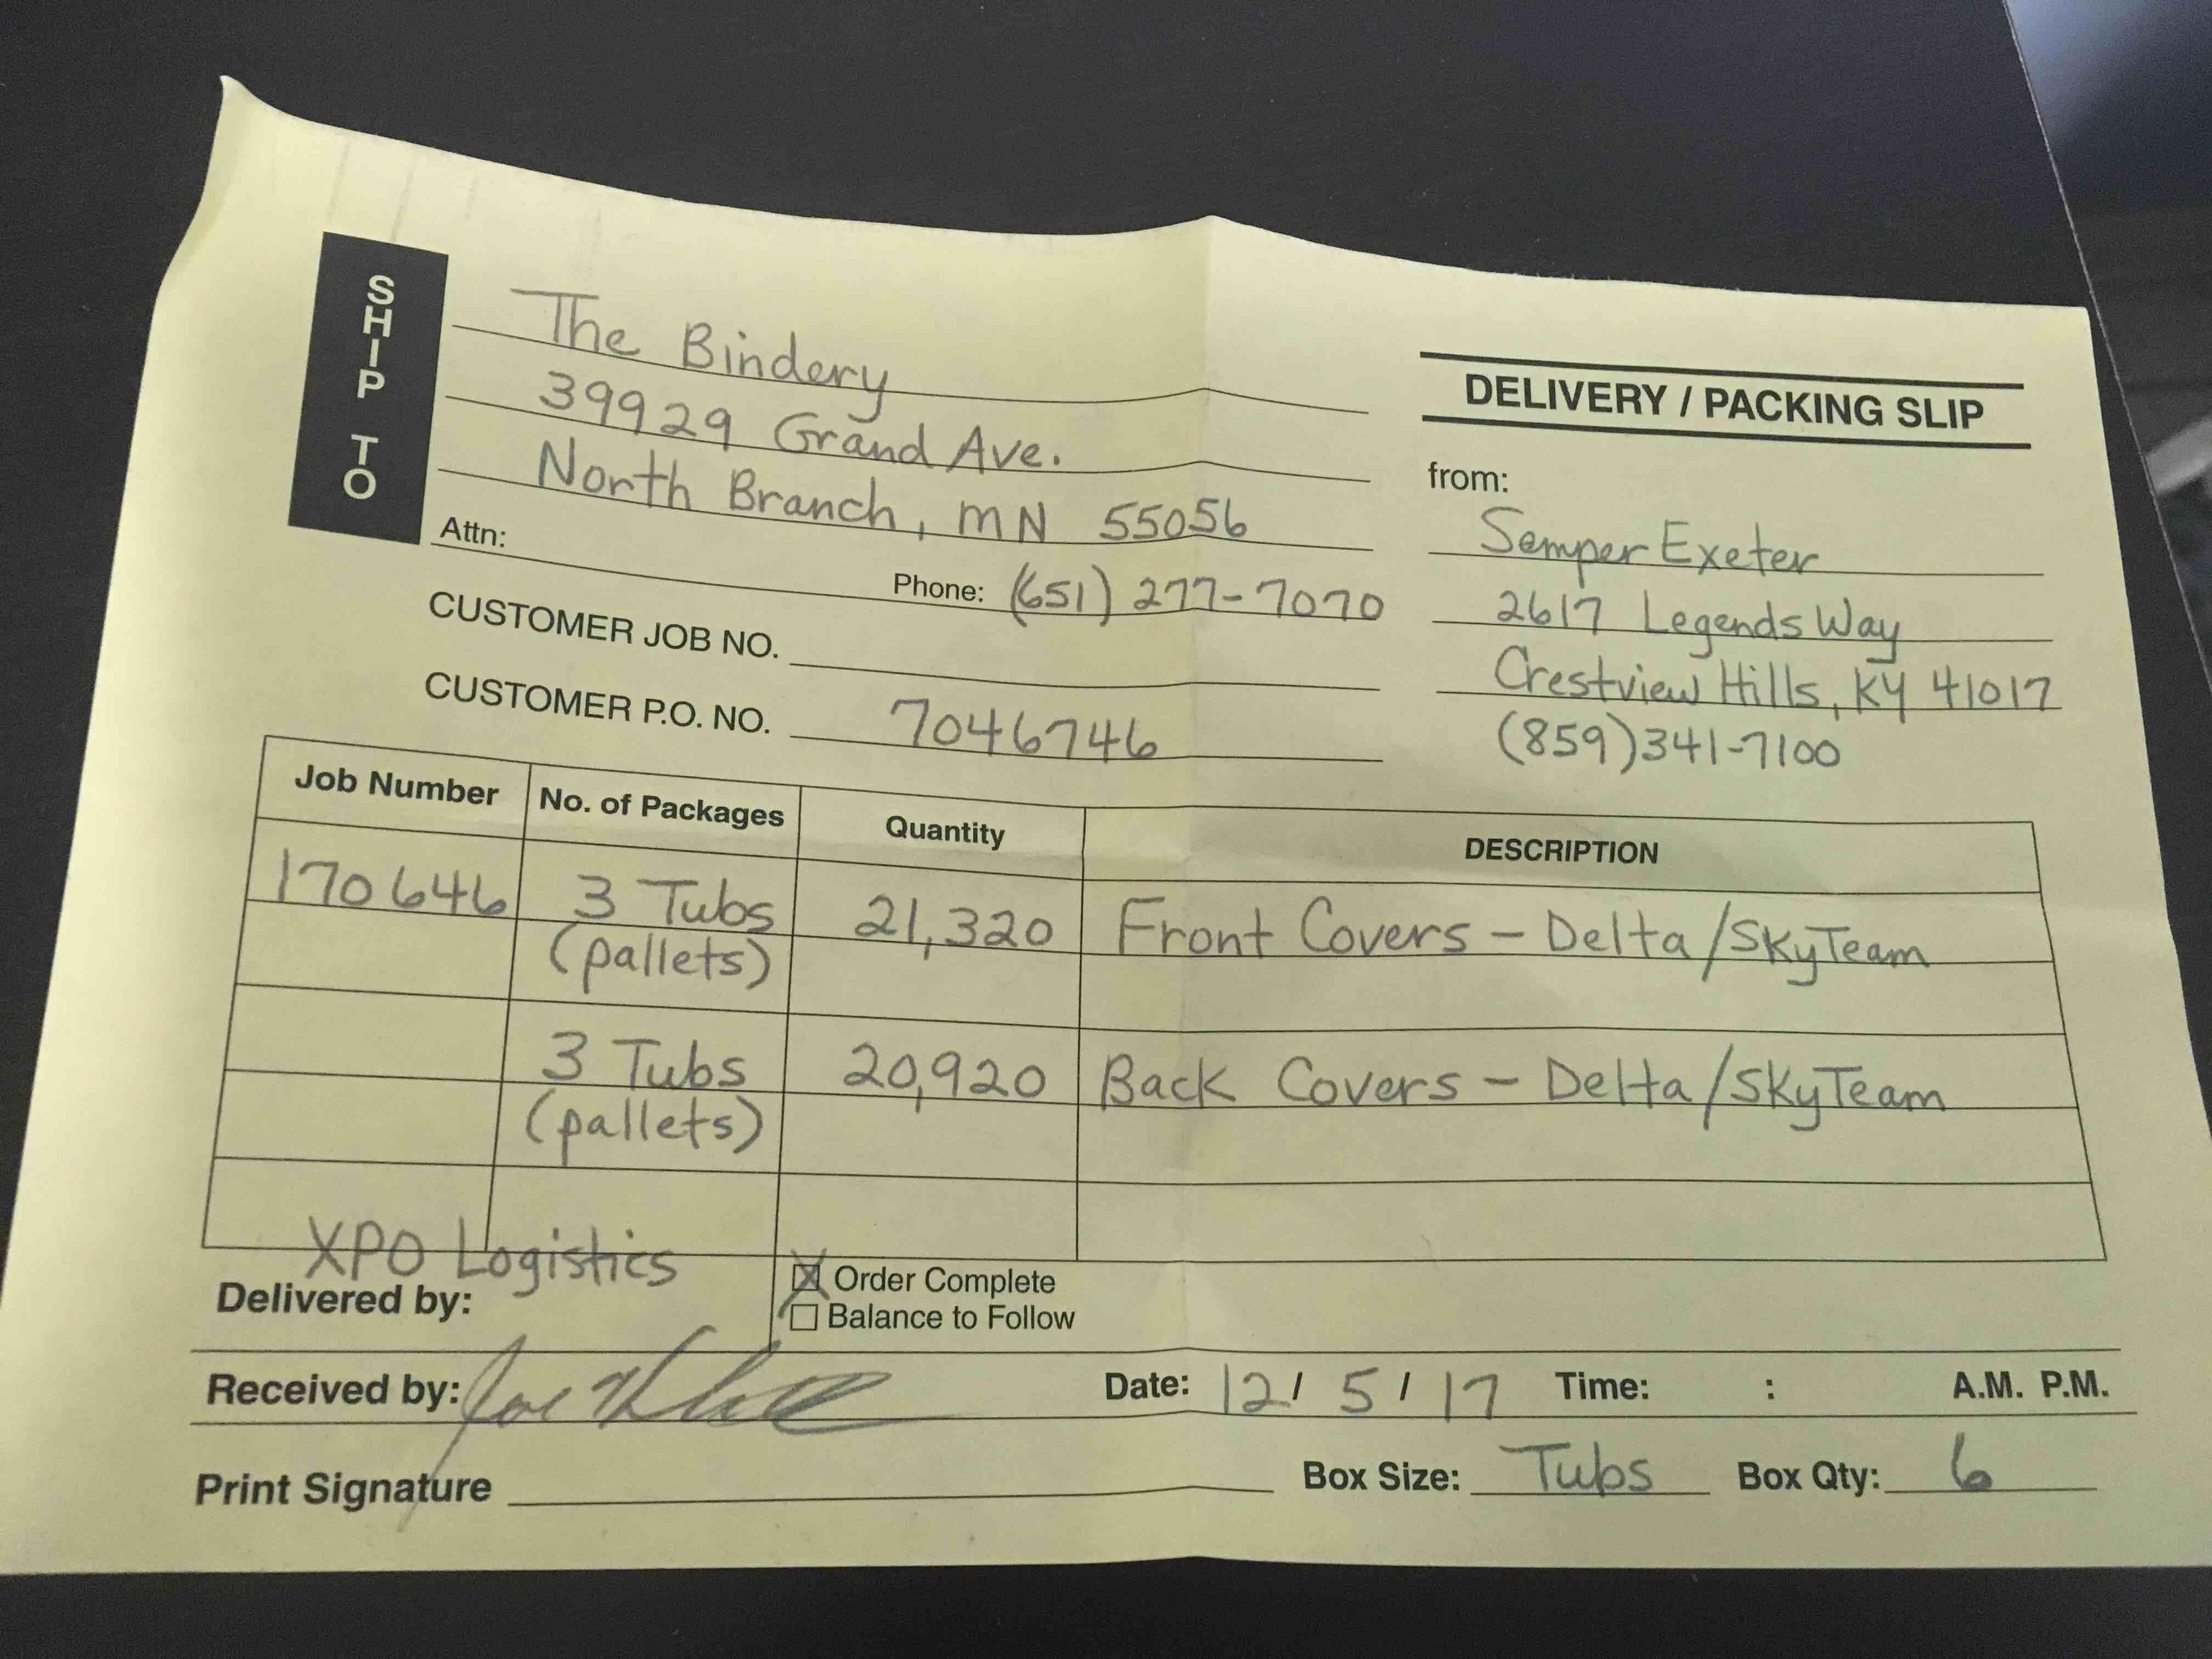 SHIP TO
The Bindery
39929 Grand Ave.
North Branch, MN 55056
Attn:
Phone: (651) 277-7070
CUSTOMER JOB NO.
CUSTOMER P.O. NO. 7046746
DELIVERY / PACKING SLIP
from:
Semper Exeter
2617 Legends Way
Crestview Hills, KY 41017
(859)341-7100
Job Number No. of Packages Quantity DESCRIPTION
170646 3 Tubs 21,320 Front Covers - Delta/SkyTeam
(pallets)
3 Tubs 20,920 Back Covers - Delta/SkyTeam
(pallets)
XPO Logistics
Delivered by:
Order Complete
Balance to Follow
Received by: Joe
Date: 12/ 5 / 17 Time: : A.M. P.M.
Print Signature
Box Size: Tubs Box Qty: 6